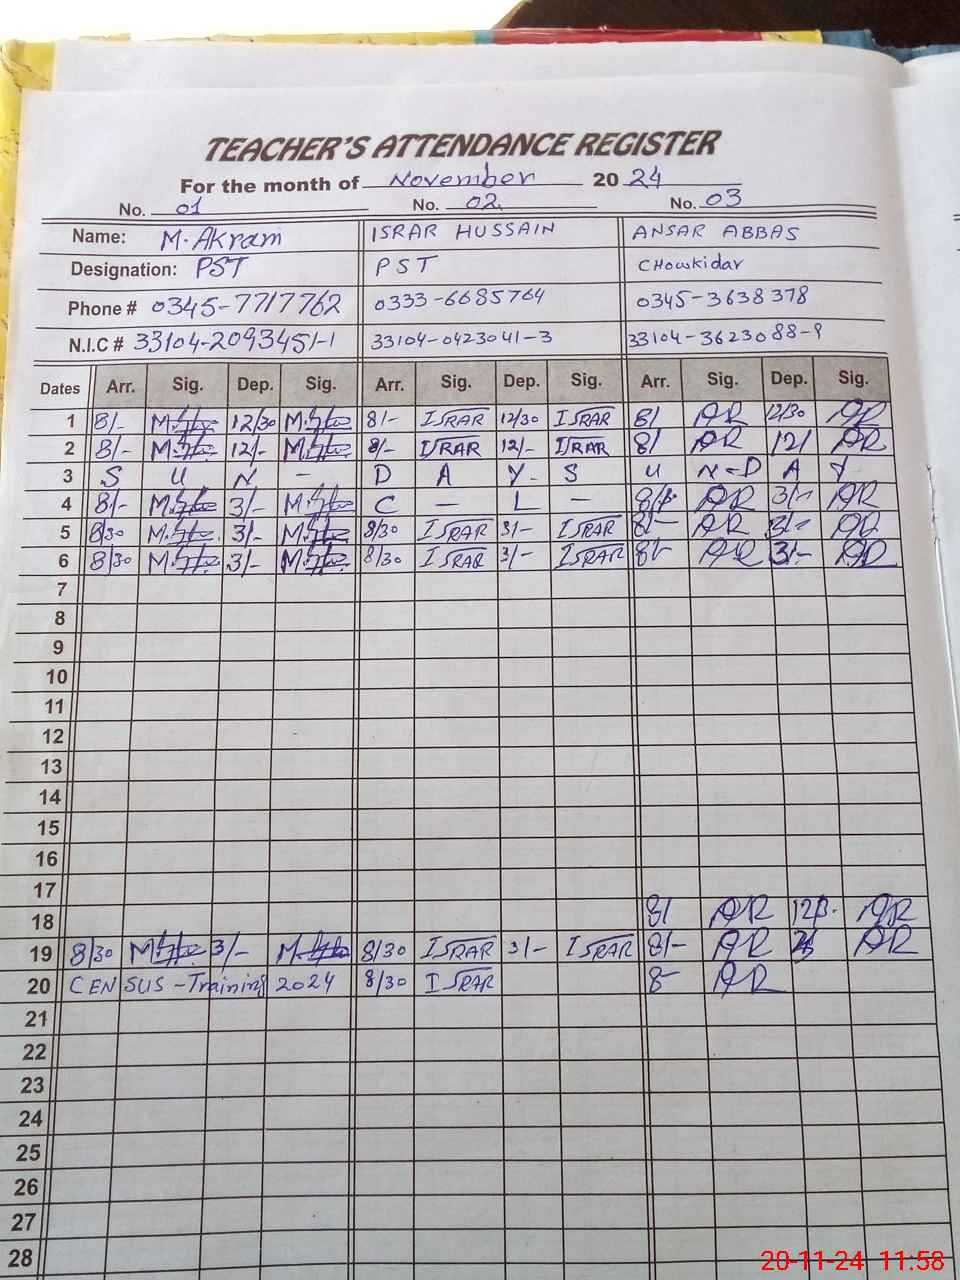 TEACHER'S ATTENDANCE REGISTER
For the month of November 20 24
No. 01 No. 02 No. 03
Name: M. Akram ISRAR HUSSAIN ANSAR ABBAS
Designation: PST PST CHowkidar
Phone # 0345-7717762 0333-6685764 0345-3638378
N.I.C # 33104-2093451-1 33104-0423041-3 33104-3623088-9
Dates Arr. Sig. Dep. Sig. Arr. Sig. Dep. Sig. Arr. Sig. Dep. Sig.
1 8/- 12/30 8/- ISRAR 12/30 ISRAR 8/ AR 12/30 AR
2 8/- 12/- 8/- ISRAR 12/- ISRAR 8/ AR 12/ AR
3 S U N - D A Y - S U N - D A Y
4 8/- 3/- C - L - AR 3/- AR
5 8/30 3/- 8/30 ISRAR 3/- ISRAR 8/- AR 3/- AR
6 8/30 3/- 8/30 ISRAR 3/- ISRAR 8/- AR 3/- AR
7
8
9
10
11
12
13
14
15
16
17
18 8/ AR AR
19 8/30 3/- 8/30 ISRAR 3/- ISRAR 8/- AR AR
20 CENSUS - Training 2024 8/30 ISRAR 8- AR
21
22
23
24
25
26
27
28
20-11-24 11:58